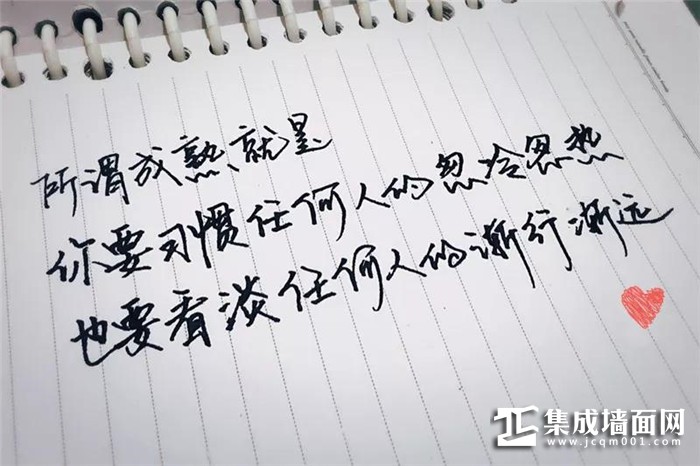 所谓成熟就是
你要习惯任何人的忽冷忽热
也要看淡任何人的渐行渐远
集成墙面网
www.jcqm001.com